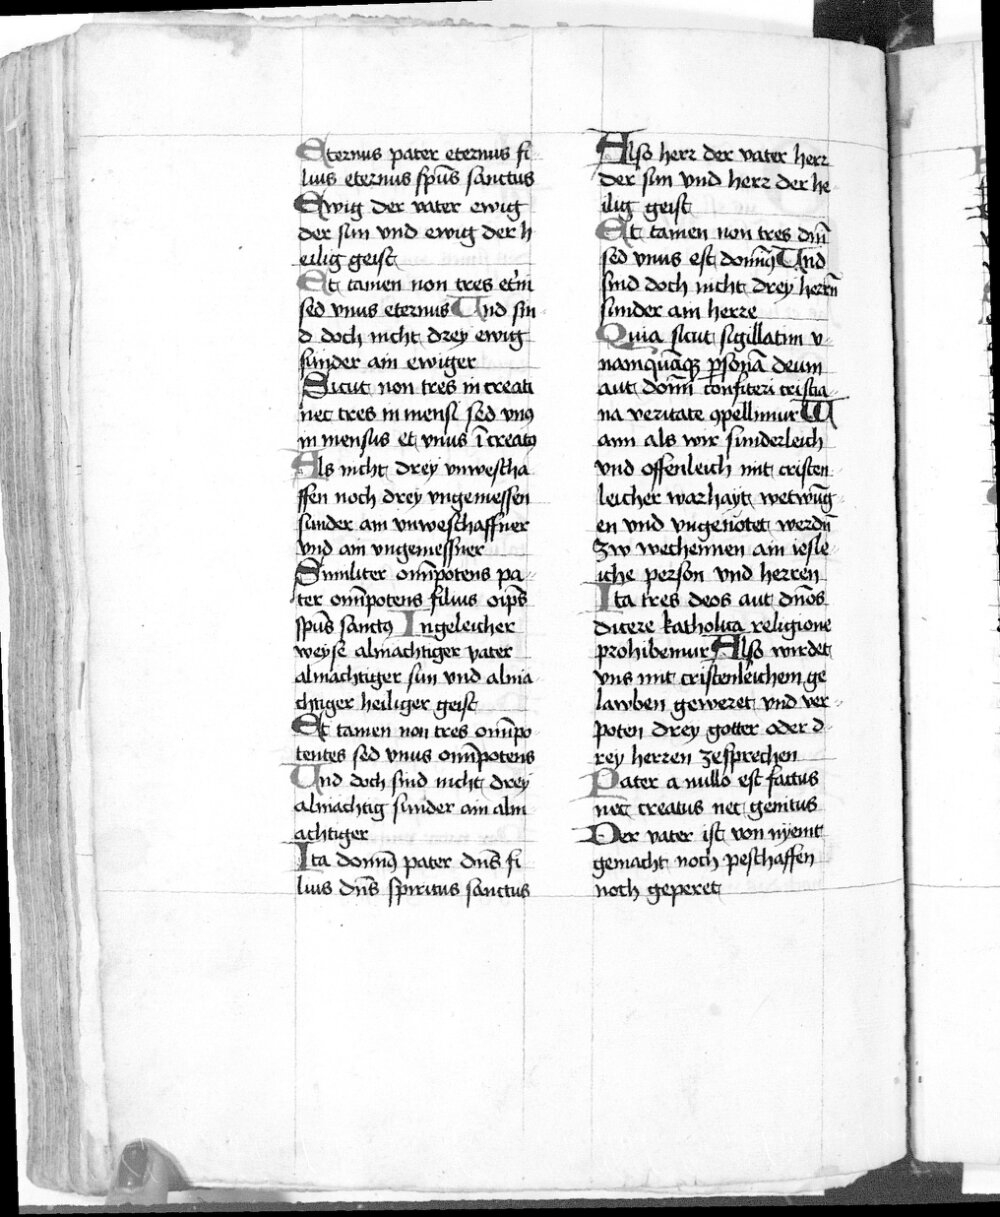 Eternus pater eternus fi
lius eternus sp̄us sanctus
Ewig der vater ewig
der sun vnd ewig der h
eilig geist
Et tamen non tres et̄ni
sed vnus eternus Vnd sin
d doch nicht drey ewig
sunder ain ewiger
Sicut non tres in creati
nec tres in mensi sed vnꝰ
in mensus et vnus ī creatꝰ
Als nicht drey vnwescha
ffen noch drey vngemessen
sunder ain vnweschaffner
vnd ain vngemessner
Similiter om̄ipotens pa
ter om̄ipotens filius oīps
sp̄us sanctꝰ Ingeleicher
weyse almachtiger vater
almachtiger sun vnd alma
chtiger heiliger geist
Et tamen non tres om̄ipo
tentes sed vnus om̄ipotens
Vnd doch sind nicht drey
almachtig sunder ain alm
achtiger
Ita dominꝰ pater dn̄s fi
lius dn̄s spiritus sanctus
Also herr der vater herr
der sun vnd herr der he
ilig geist
Et tamen non tres dn̄i
sed vnus est dominꝰ Vnd
sind doch nicht drey herrn̄
sunder ain herre
Quia sicut sigillatim v
namquāqꝫ ꝑsonā deum
aut domī confiteri cristia
na veritate ꝯpellimur W
ann als wir sunderleich
vnd offenleich mit cristen
leicher warhayt wetwūg
en vnd vngenotet werdn̄
zw wechennen ain iesle
iche person vnd herren
Ita tres deos aut dn̄os
dicere katholica religione
prohibemur Also wirdet
vns mit cristenleichem ge
lawben geweret vnd ver
poten drey gotter oder d
rey herren zesprechen
Pater a nullo est factus
nec creatus nec genitus
Der vater ist von nyemt
gemacht noch peschaffen
noch geperet